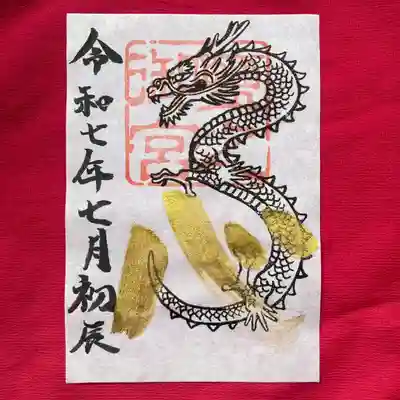 令和七年七月初辰
心